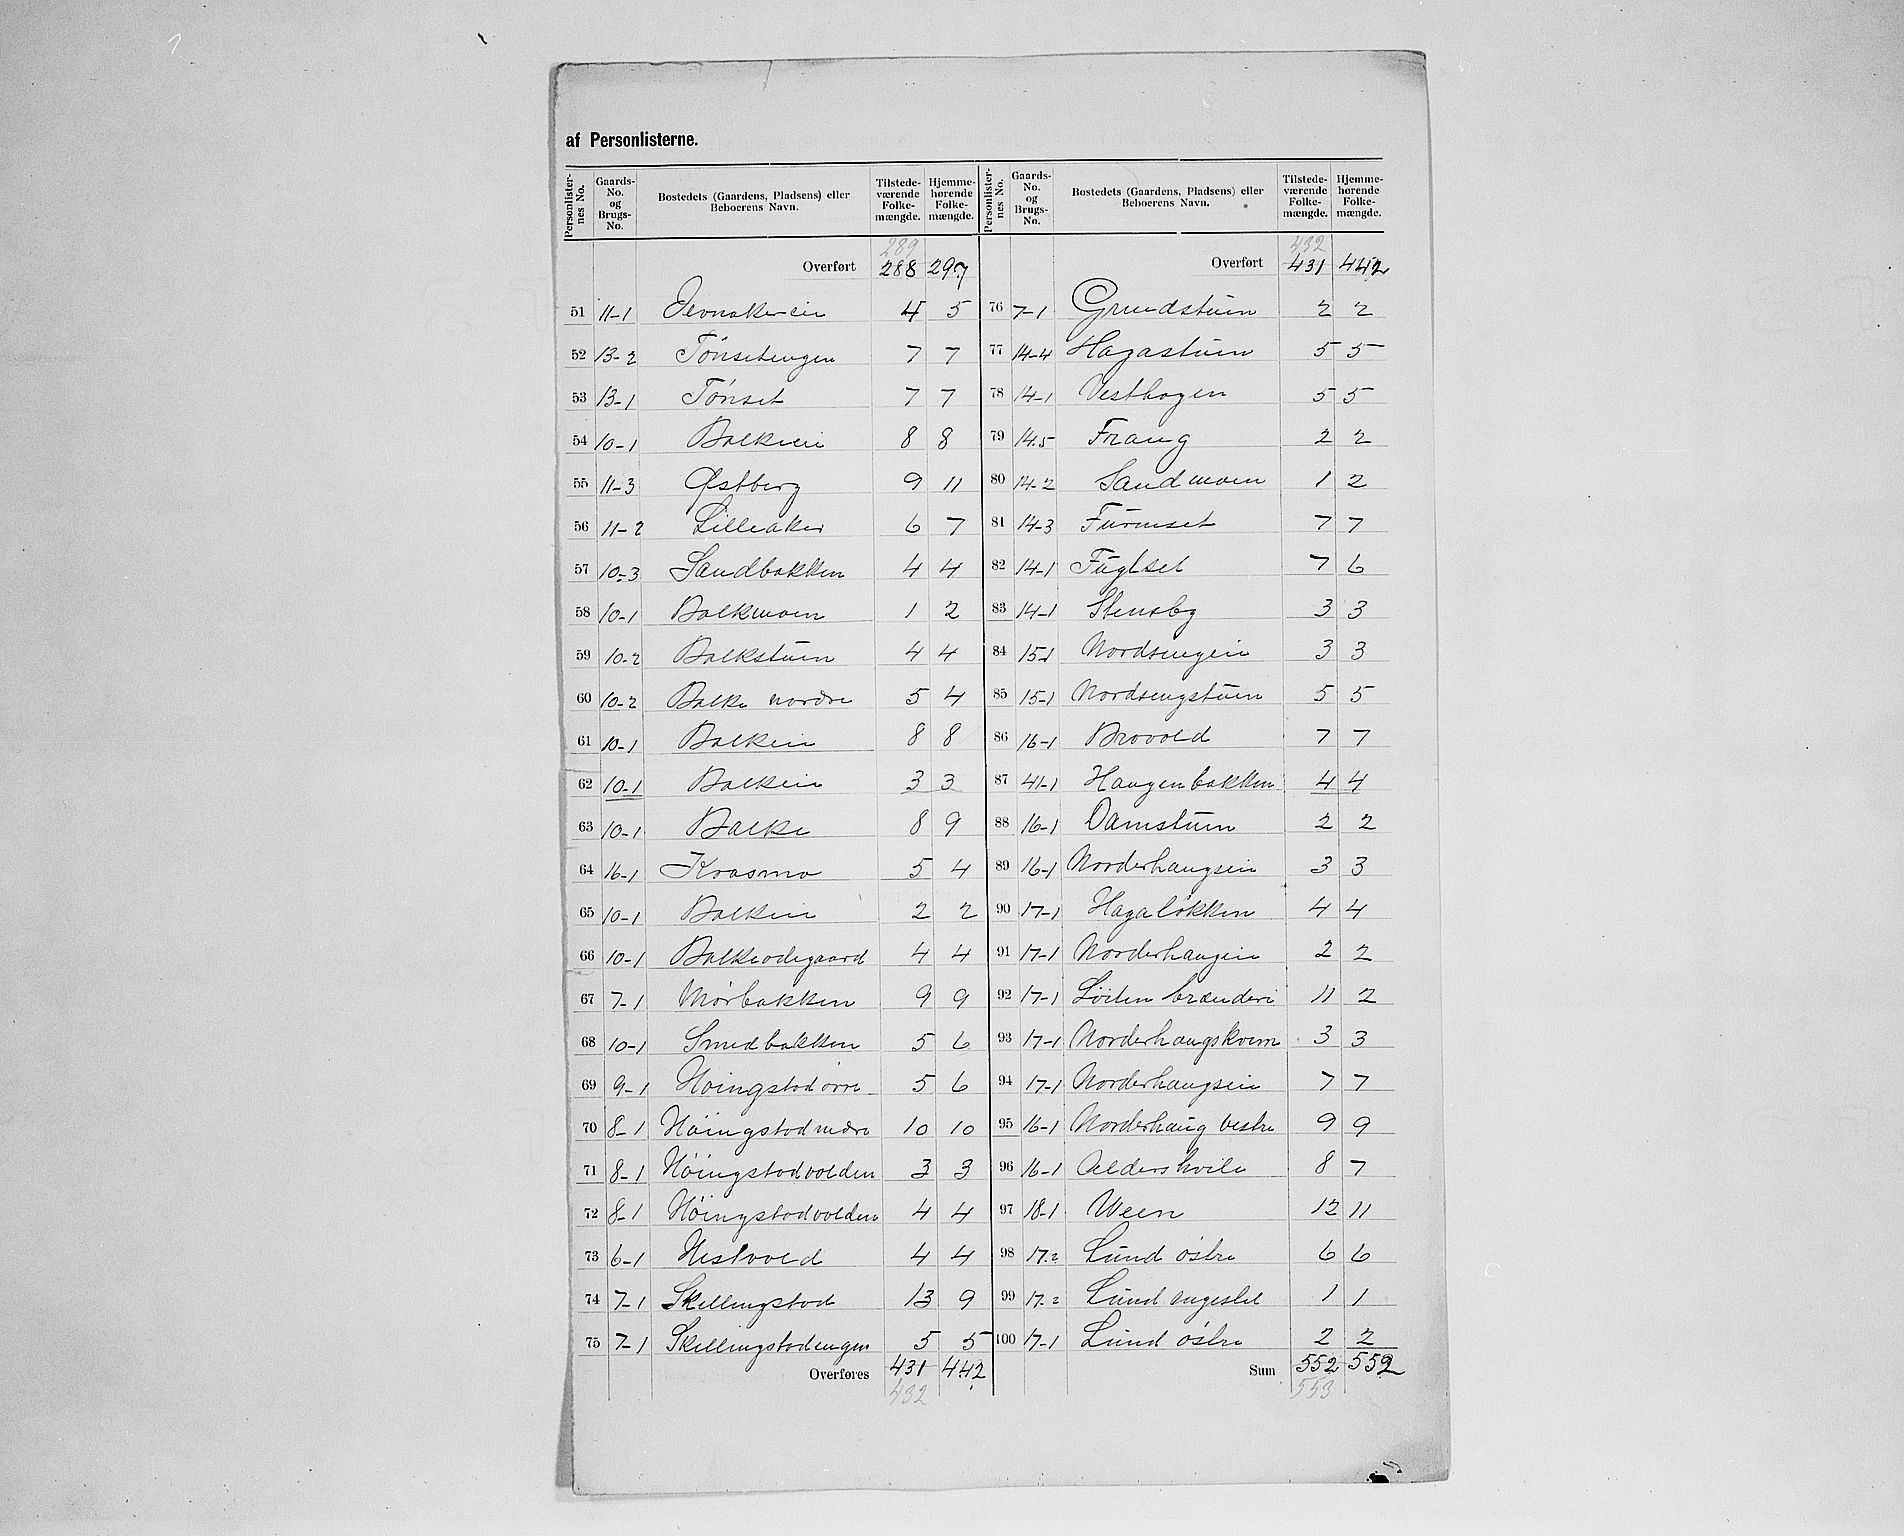 af Personlisterne.
Personlister-nes No. Gaards-No. og Brugs-No. Bostedets (Gaardens, Pladsens) eller Beboerens Navn. Tilstede-værende Folke-mængde. Hjemme-hørende Folke-mængde.
289
Overført 288 297
51 11-1 4 5
52 13-2 Tönsetengen 7 7
53 13-1 Tönset 7 7
54 10-1 Balkeie 8 8
55 11-3 Østberg 9 11
56 11-2 Lilleaker 6 7
57 10-3 Sandbakken 4 4
58 10-1 Balkmoen 1 2
59 10-2 Balkstuen 4 4
60 10-2 Balke nordre 5 4
61 10-1 Balkeie 8 8
62 10-1 Balkeie 3 3
63 10-1 Balke 8 9
64 16-1 Kroasmo 5 4
65 10-1 Balkeie 2 2
66 10-1 Balkeodegaard 4 4
67 7-1 Mörbakken 9 9
68 10-1 Smedbakken 5 6
69 9-1 Höingstad övre 5 6
70 8-1 Höingstad nedre 10 10
71 8-1 Höingstadvolden 3 3
72 8-1 Höingstadvolden 4 4
73 6-1 Hestvold 4 4
74 7-1 Skillingstad 13 9
75 7-1 Skillingstadengen 5 5
Overføres 431 442
432
Personlister-nes No. Gaards-No. og Brugs-No. Bostedets (Gaardens, Pladsens) eller Beboerens Navn. Tilstede-værende Folke-mængde. Hjemme-hørende Folke-mængde.
432
Overført 431 442
76 7-1 Grundstuen 2 2
77 14-4 Hagastuen 5 5
78 14-1 Vesthagen 5 5
79 14.5 Frang 2 2
80 14-2 Sandmoen 1 2
81 14-3 Furuset 7 7
82 14-1 Fuglset 7 6
83 14-1 Stensby 3 3
84 15-1 Nordsengeie 3 3
85 15-1 Nordsengstuen 5 5
86 16-1 Brovold 7 7
87 41-1 Haugenbakken 4 4
88 16-1 Damstuen 2 2
89 16-1 Norderhaugseie 3 3
90 17-1 Hagalökken 4 4
91 17-1 Norderhaugeie 2 2
92 17-1 Löiten brænderi 11 2
93 17-1 Norderhaugskvern 3 3
94 17-1 Norderhaugseie 7 7
95 16-1 Norderhaug vestre 9 9
96 16-1 Aldershvile 8 7
97 18-1 Ween 12 11
98 17.2 Lund östre 6 6
99 17.2 Lund 1 1
100 17-1 Lund östre 2 2
Sum 552 552
553